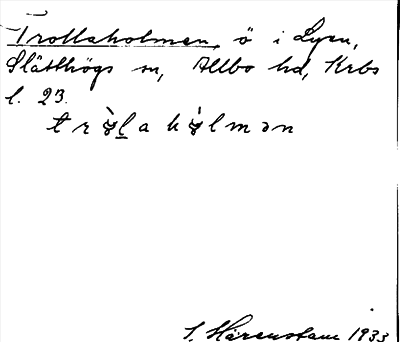 Trollaholmen, ö i Lyen,
Slätthögs sn, Allbo hd, Krbs
l. 23.
S. Härenstam 1933